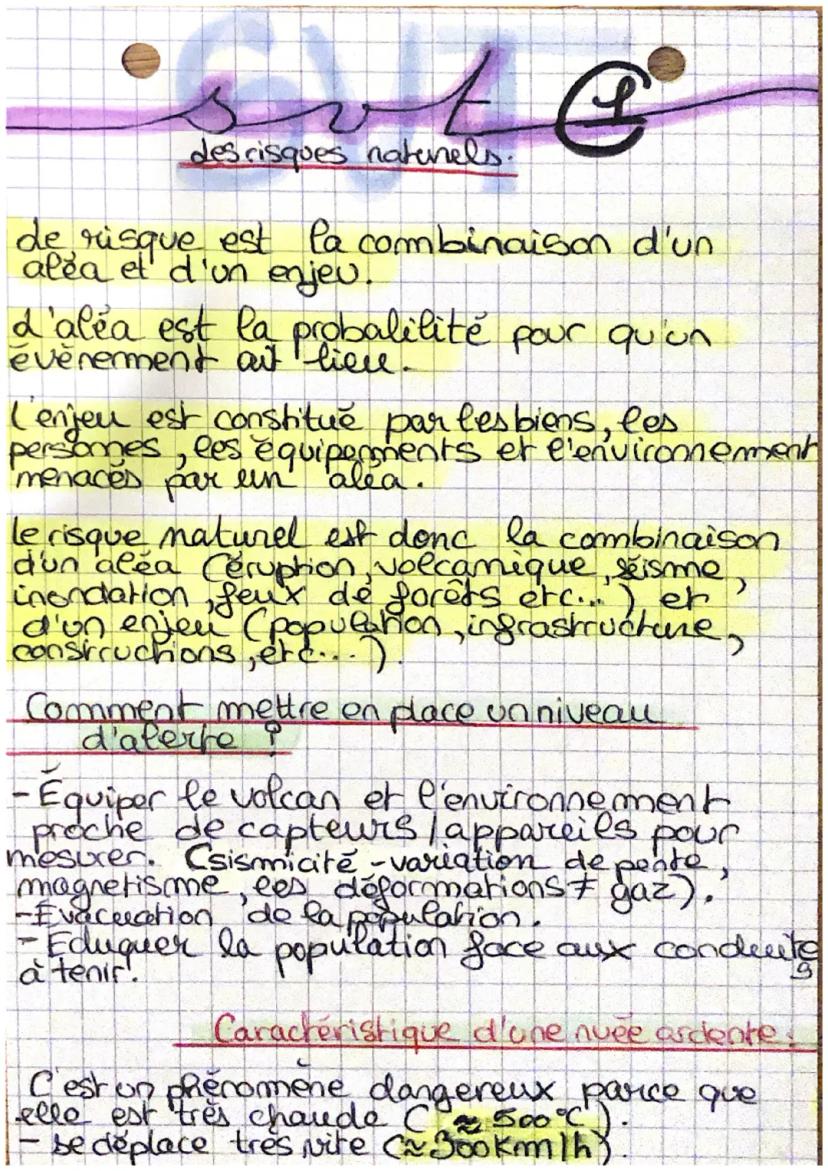 SVT
svt 1
des risques naturels.
de risque est la combinaison d'un
aléa et d'un enjeu.
d'aléa est la probalilité pour qu'un
évènement ait lieu.
l'enjeu est constitué par les biens, les
personnes, les équipements et l'environnement
menacés par un aléa.
le risque naturel est donc la combinaison
d'un aléa (éruption, volcanique, séisme,
inondation, feux de forêts etc...) et
d'un enjeu (population, infrastructure,
constructions, etc...).
Comment mettre en place un niveau
d'alerte ?
- Équiper le volcan et l'environnement
proche de capteurs / appareils pour
mesurer. (sismicité - variation de pente,
magnetisme, les déformations ≠ gaz).
- Évacuation de la population.
- Eduquer la population face aux conduites
à tenir.
Caractéristique d'une nuée ardente :
C'est un phénomène dangereux parce que
elle est très chaude (≈ 500°C).
- se déplace très vite (≈ 300km/h)